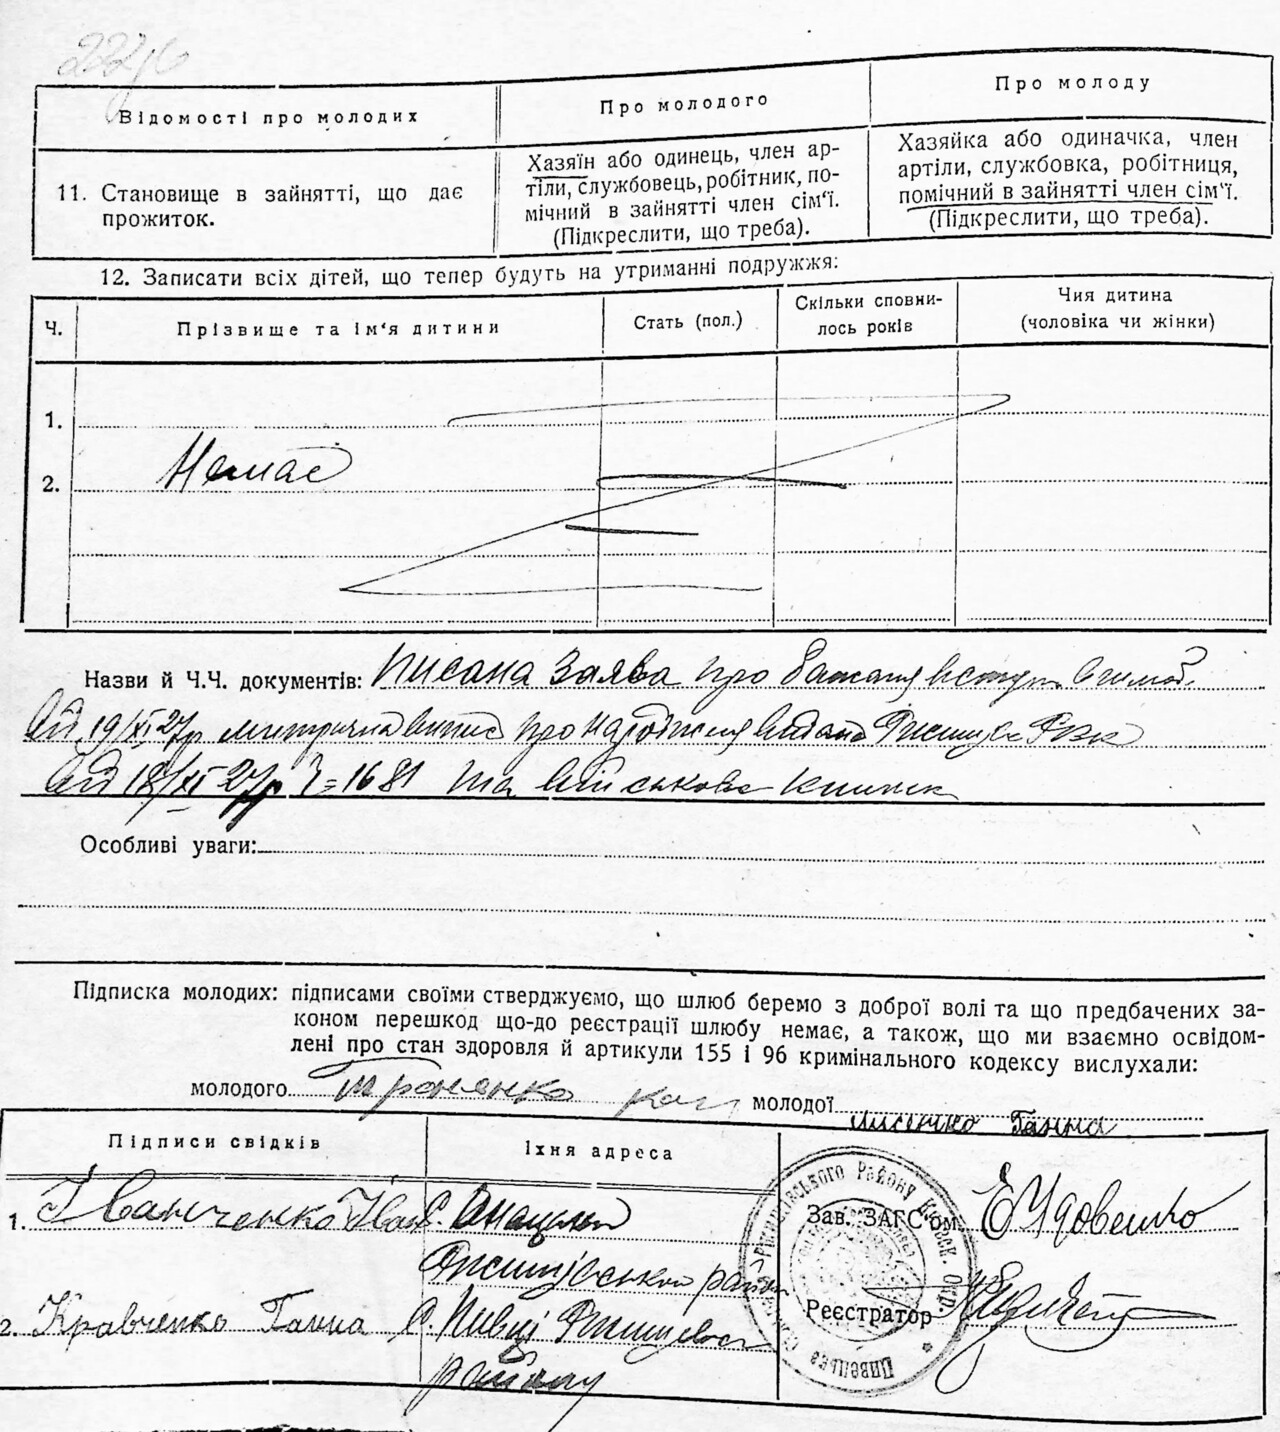 Відомості про молодих
Про молодого
Про молоду
11. Становище в зайнятті, що дає
прожиток.
Хазяїн або одинець, член ар-
тіли, службовець, робітник, по-
мічний в зайнятті член сім'ї.
(Підкреслити, що треба).
Хазяйка або одиначка, член
артіли, службовка, робітниця,
помічний в зайнятті член сім'ї.
(Підкреслити, що треба).
12. Записати всіх дітей, що тепер будуть на утриманні подружжя:
Ч.
Прізвище та ім'я дитини
Стать (пол.)
Скільки сповни-
лось років
Чия дитина
(чоловіка чи жінки)
1.
Немає
2.
Назви й Ч.Ч. документів: Писана Заява про
від 19/XI 27р про народження
від 18/XI 27р 1681 та військова книжк
Особливі уваги:
Підписка молодих: підписами своїми стверджуємо, що шлюб беремо з доброї волі та що предбачених за-
коном перешкод що-до реєстрації шлюбу немає, а також, що ми взаємно освідом-
лені про стан здоровля й артикули 155 і 96 кримінального кодексу вислухали:
молодого
молодої Лисенко Ганна
Підписи свідків
Їхня адреса
1. Іванченко Іван с.
район
2. Кравченко Ганна с. Пивці
району
Зав. ЗАГС'ом Е Удовенко
Реєстратор
Району